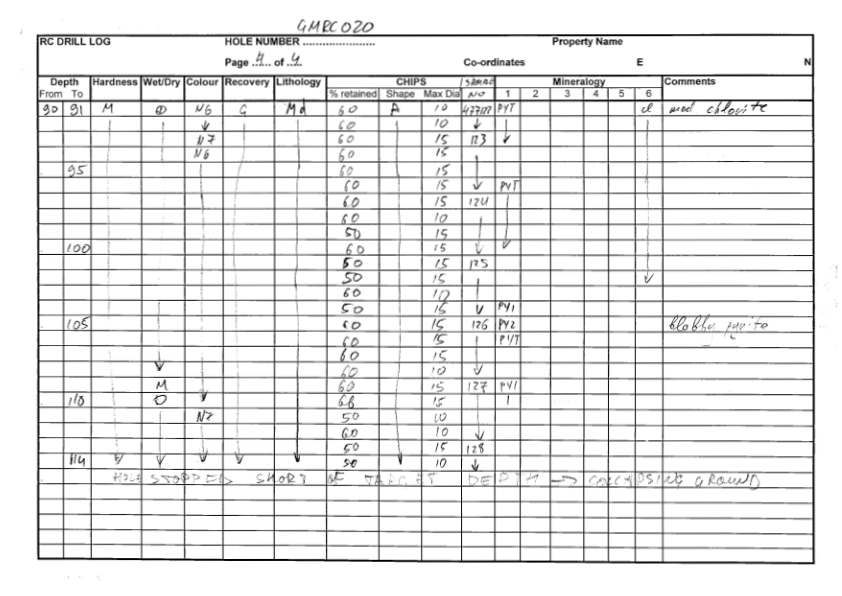 GMRC020
RC DRILL LOG HOLE NUMBER ........................ Property Name
Page .4.. of .4. Co-ordinates E N
Depth Hardness Wet/Dry Colour Recovery Lithology CHIPS Mineralogy Comments
From To % retained Shape Max Dia NO 1 2 3 4 5 6
90 91 M D N6 G Md 60 A 10 PYT cl mod chlorite
60 10
N7 60 15 123
N6 60 15
95 60 15
60 15 PYT
60 15 124
60 10
50 15
100 60 15
50 15 125
50 15
60 10
50 15 PY1
105 60 15 126 PY2 blobby pyrite
60 15 PYT
60 15
60 10
M 60 15 127 PY1
110 D 15 1
N7 50 10
60 10
50 15 128
114 50 10
HOLE STOPPED SHORT OF TARGET DEPTH → COLLAPSING GROUND